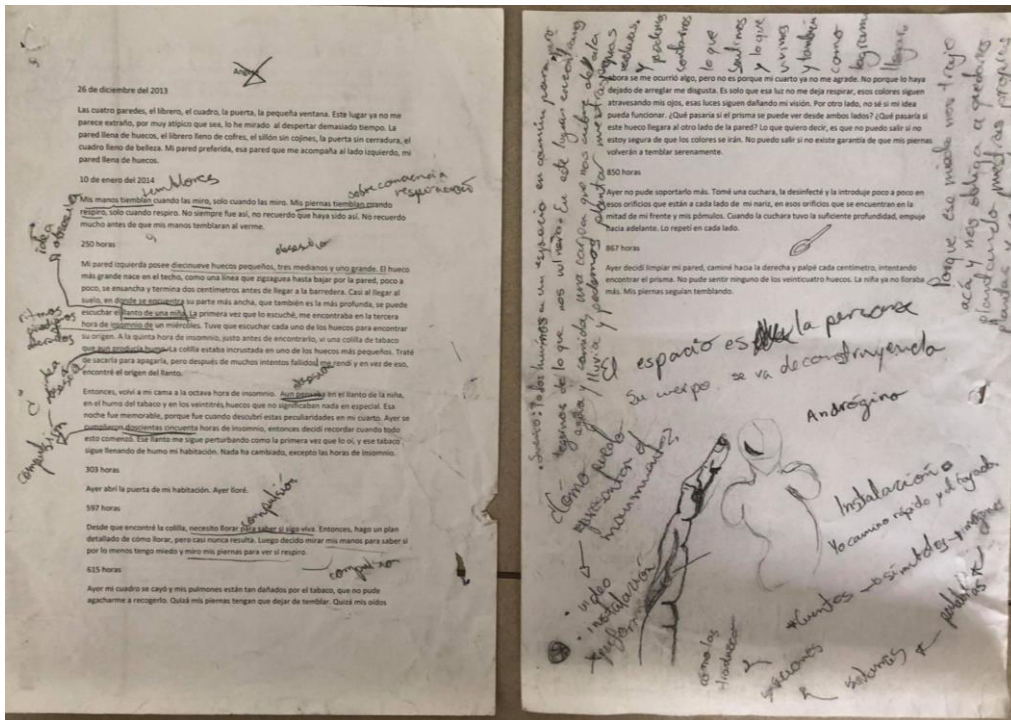 26 de diciembre del 2013
Las cuatro paredes, el librero, el cuadro, la puerta, la pequeña ventana. Este lugar ya no me
parece extraño, por muy atípico que sea, lo he mirado al despertar demasiado tiempo. La
pared llena de huecos, el librero lleno de cofres, el sillón sin cojines, la puerta sin cerradura, el
cuadro lleno de belleza. Mi pared preferida, esa pared que me acompaña al lado izquierdo, mi
pared llena de huecos.
10 de enero del 2014
temblores
sobre conciencia
respiración
Mis manos tiemblan cuando las miro, solo cuando las miro. Mis piernas tiemblan cuando
respiro, solo cuando respiro. No siempre fue así, no recuerdo que haya sido así. No recuerdo
mucho antes de que mis manos temblaran al verme.
idea
obsesiva
250 horas
obsesivo
Mi pared izquierda posee diecinueve huecos pequeños, tres medianos y uno grande. El hueco
más grande nace en el techo, como una línea que zigzaguea hasta bajar por la pared, poco a
poco, se ensancha y termina dos centímetros antes de llegar a la barredera. Casi al llegar al
suelo, en donde se encuentra su parte más ancha, que también es la más profunda, se puede
escuchar el llanto de una niña. La primera vez que lo escuché, me encontraba en la tercera
hora de insomnio de un miércoles. Tuve que escuchar cada uno de los huecos para encontrar
su origen. A la quinta hora de insomnio, justo antes de encontrarlo, vi una colilla de tabaco
que aun producía humo. La colilla estaba incrustada en uno de los huecos más pequeños. Traté
de sacarla para apagarla, pero después de muchos intentos fallidos me rendí y en vez de eso,
encontré el origen del llanto.
idea
obsesiva
compulsión
Entonces, volví a mi cama a la octava hora de insomnio. Aun pensaba en el llanto de la niña,
en el humo del tabaco y en los veintitrés huecos que no significaban nada en especial. Esa
noche fue memorable, porque fue cuando descubrí estas peculiaridades en mi cuarto. Ayer se
cumplieron doscientas cincuenta horas de insomnio, entonces decidí recordar cuando todo
esto comenzó. Ese llanto me sigue perturbando como la primera vez que lo oí, y ese tabaco
sigue llenando de humo mi habitación. Nada ha cambiado, excepto las horas de insomnio.
303 horas
Ayer abrí la puerta de mi habitación. Ayer lloré.
597 horas
compulsión
Desde que encontré la colilla, necesito llorar para saber si sigo viva. Entonces, hago un plan
detallado de cómo llorar, pero casi nunca resulta. Luego decido mirar mis manos para saber si
por lo menos tengo miedo y miro mis piernas para ver si respiro.
compulsion
615 horas
Ayer mi cuadro se cayó y mis pulmones están tan dañados por el tabaco, que no pude
agacharme a recogerlo. Quizá mis piernas tengan que dejar de temblar. Quizá mis oídos
y podamos
contarnos
lo que
sentimos
y lo que
vivimos
y también
como
logramos
llegar
ahora se me ocurrió algo, pero no es porque mi cuarto ya no me agrade. No porque lo haya
dejado de arreglar me disgusta. Es solo que esa luz no me deja respirar, esos colores siguen
atravesando mis ojos, esas luces siguen dañando mi visión. Por otro lado, no sé si mi idea
pueda funcionar. ¿Qué pasaría si el prisma se puede ver desde ambos lados? ¿Qué pasaría si
este hueco llegara al otro lado de la pared? Lo que quiero decir, es que no puedo salir si no
estoy segura de que los colores se irán. No puedo salir si no existe garantía de que mis piernas
volverán a temblar serenamente.
850 horas
Ayer no pude soportarlo más. Tomé una cuchara, la desinfecté y la introduje poco a poco en
esos orificios que están a cada lado de mi nariz, en esos orificios que se encuentran en la
mitad de mi frente y mis pómulos. Cuando la cuchara tuvo la suficiente profundidad, empuje
hacia adelante. Lo repetí en cada lado.
867 horas
Ayer decidí limpiar mi pared, caminé hacia la derecha y palpé cada centímetro, intentando
encontrar el prisma. No pude sentir ninguno de los veinticuatro huecos. La niña ya no lloraba
más. Mis piernas seguían temblando.
Porque ese miedo nos trajo
acá y nos obliga a quedarnos
plantando nuestras propias
El espacio es la persona
Su cuerpo se va deconstruyendo
Andrógino
Instalación
Yo camino rápido y él
¿Cómo puedo
movimiento?
video
instalación
*Cuentos
símbolos - imágenes
palabras
como los